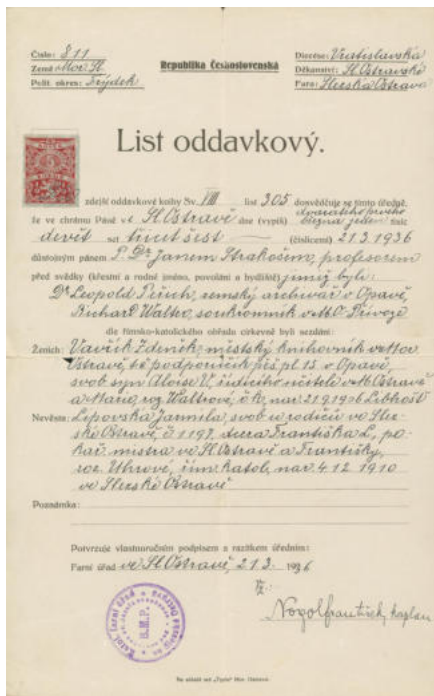 Číslo: 811
Země: Mor. Sl.
Polit. okres: Frýdek
Republika Československá
Diecése: Vratislavská
Děkanství: Sl. Ostravské
Fara: Slezská Ostrava
List oddavkový.
zdejší oddavkové knihy Sv. VIII list 305 dosvědčuje se tímto úředně,
že ve chrámu Páně v Sl. Ostravě dne (vypiš) dvacátého prvého března jeden tisíc
devět set třicet šest (číslicemi) 21.3.1936
důstojným pánem P. Dr Janem Strakošem, profesorem
před svědky (křestní a rodné jméno, povolání a bydliště) jimiž byli:
Dr Leopold Peřich, zemský archivář v Opavě,
Richard Walter, soukromník v M. O. Přívoze
dle římsko-katolického obřadu církevně byli sezdáni:
Ženich: Vavřík Zdeněk, městský knihovník v Mor.
Ostravě, podporučík pěš. pl. 15 v Opavě,
svob. syn Aloise V., řídícího učitele v M. Ostravě
a Marie, roz. Waltrové, nar. 21.9.1906
Nevěsta: Lipovská Jarmila, svob. u rodičů ve Slez-
ské Ostravě, č. 1197, dcera Františka L.,
mistra ve Sl. Ostravě a Františky,
roz. Uhrové, řím. katol., nar. 4.12.1910
ve Slezské Ostravě
Poznámka:
Potvrzuje vlastnoručním podpisem a razítkem úředním:
Farní úřad ve Sl. Ostravě, 21.3. 1936
kaplan